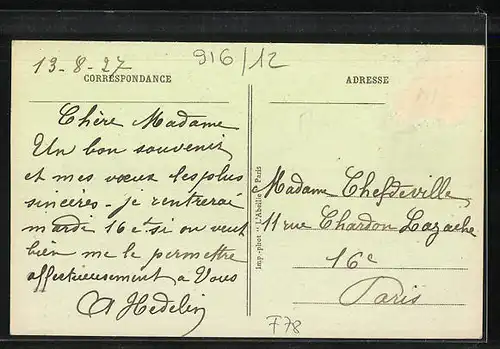 916/12
13-8-27
CORRESPONDANCE
ADRESSE
Chère Madame
Un bon souvenir
et mes vœux les plus
sincères - je rentrerai
mardi 16 et si on veut
bien me le permettre
affectueusement a Vous
A Hedelin
Imp.-phot "L'Abeille" Paris
Madame Chefdeville
11 rue Chardon Lagache
16e
Paris
F78